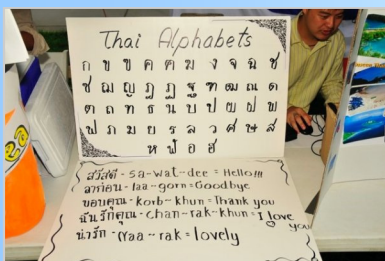 Thai Alphabets
ก ข ฃ ค ฅ ฆ ง จ ฉ ช
ซ ฌ ญ ฎ ฏ ฐ ฑ ฒ ณ ด
ต ถ ท ธ น บ ป ผ ฝ พ
ฟ ภ ม ย ร ล ว ศ ษ ส
ห ฬ อ ฮ
สวัสดี - Sa-wat-dee = Hello!!!
ลาก่อน - laa-gorn = Goodbye
ขอบคุณ - korb-khun = Thank you
ฉันรักคุณ - chan-rak-khun = I love you
น่ารัก - Naa-rak = lovely